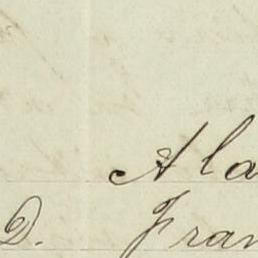 Ala
D. Fran